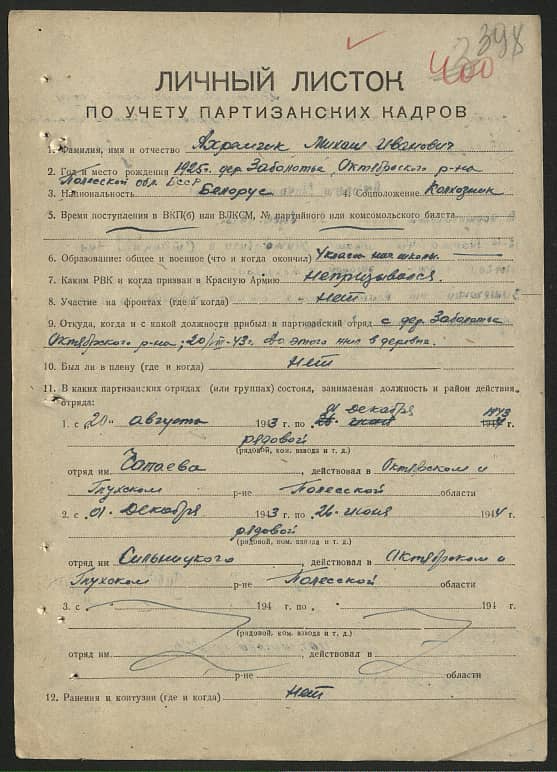 398
400
ЛИЧНЫЙ ЛИСТОК
ПО УЧЕТУ ПАРТИЗАНСКИХ КАДРОВ
1. Фамилия, имя и отчество Ахрамчик Михаил Иванович
2. Год и место рождения 1925 г. дер. Заболотье, Октябрского р-на
Полесской обл. БССР
3. Национальность Белорус 4. Соцположение Колхозник
5. Время поступления в ВКП(б) или ВЛКСМ, № партийного или комсомольского билета
6. Образование: общее и военное (что и когда окончил) школы.
7. Каким РВК и когда призван в Красную Армию Непризывался.
8. Участие на фронтах (где и когда) Нет
9. Откуда, когда и с какой должности прибыл в партизанский отряд с дер. Заболотье
Октябрского р-на; 20/VIII-43 г. До этого жил в деревне.
10. Был ли в плену (где и когда) Нет
11. В каких партизанских отрядах (или группах) состоял, занимаемая должность и район действия
отряда:
01 Декабря 1943
1. с „20“ августа 1943 г. по 26 июня 194 г.
рядовой
(рядовой, ком. взвода и т. д.)
отряд им. Чапаева, действовал в Октябрском и
Глусском р-не Полесской области
2. с 01. Декабря 1943 г. по 26 июня 1944 г.
рядовой
(рядовой, ком. взвода и т. д.)
отряд им Сильницкого, действовал в Октябрском и
Глусском р-не Полесской области
3. с 194 г. по 194 г.
(рядовой, ком. взвода и т. д.)
отряд им. , действовал в
р-не области
12. Ранения и контузии (где и когда) Нет